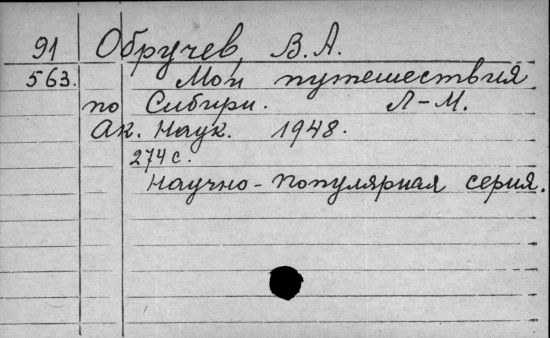 91 Обручев, В. А.
563. Мои путешествия
по Сибири. Л-М.
Ак. Наук. 1948.
274 с.
Научно-популярная серия.